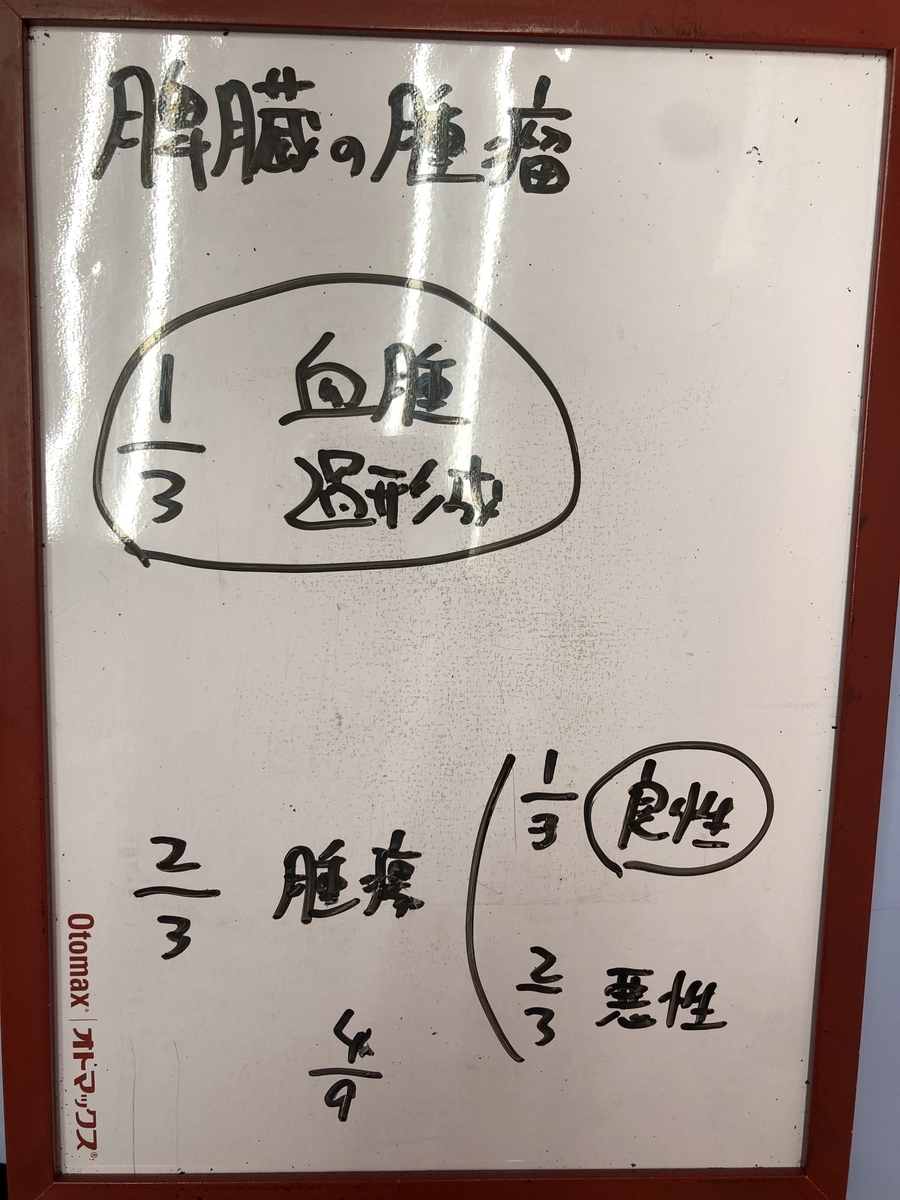 脾臓の腫瘤
1/3 血腫
過形成
2/3 腫瘍
1/3 良性
2/3 悪性
4/9
Otomax® | オトマックス®